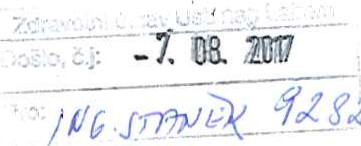 Zdravotní ústav Ústí nad Labem
Došlo, č.j: -7. 08. 2017
Pro: ING. STANĚK 9282